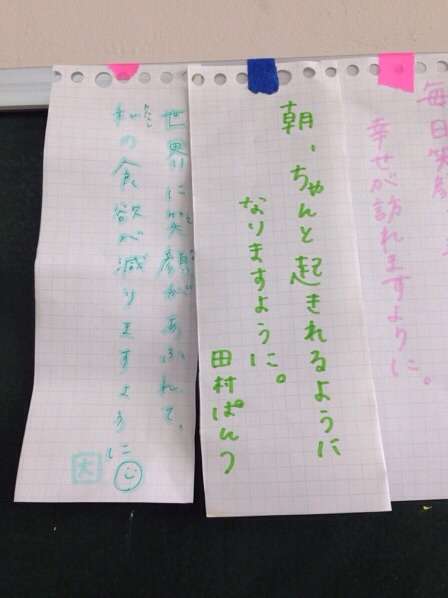 毎日笑顔
幸せが訪れますように。
朝、ちゃんと起きれるように
なりますように。
田村ぱんつ
世界に笑顔があふれて、
私の食欲が減りますように
大